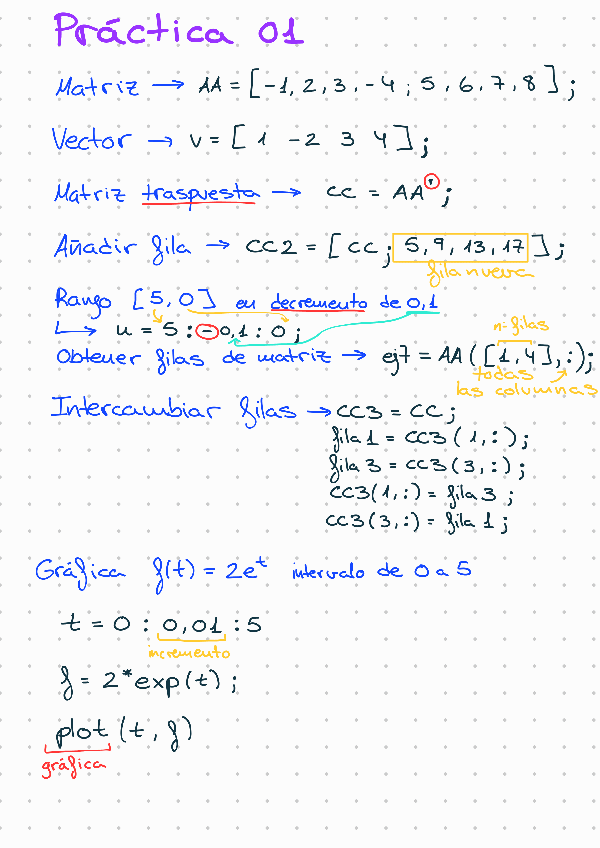 Práctica 01
Matriz → AA = [-1, 2, 3, -4 ; 5, 6, 7, 8];
Vector → v = [1 -2 3 4];
Matriz traspuesta → CC = AA';
Añadir fila → CC2 = [CC; 5, 9, 13, 17];
fila nueva
Rango [5, 0] en decremento de 0,1
↳ u = 5 : -0,1 : 0;
nº filas
Obtener filas de matriz → ej7 = AA([1,4],:);
todas
las columnas
Intercambiar filas → CC3 = CC;
fila1 = CC3(1,:);
fila3 = CC3(3,:);
CC3(1,:) = fila3;
CC3(3,:) = fila1;
Gráfica f(t) = 2e^t intervalo de 0 a 5
t = 0 : 0,01 : 5
incremento
f = 2*exp(t);
plot(t, f)
gráfica